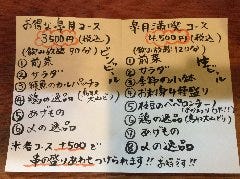 お得な皐月コース
3500円(税込)
(飲み放題90分)
①前菜
②サラダ
③鮮魚のカルパッチョ
④鶏の逸品
⑤あげもの
⑥〆の逸品
皐月満喫コース
4500円(税込)
(飲み放題120分)
①前菜
②サラダ
③季節の小鉢
④お刺身
⑥鶏の逸品
⑦あげもの
⑧〆の逸品
※各コース+500で
車の盛りあわせつけられます!!お得です!!